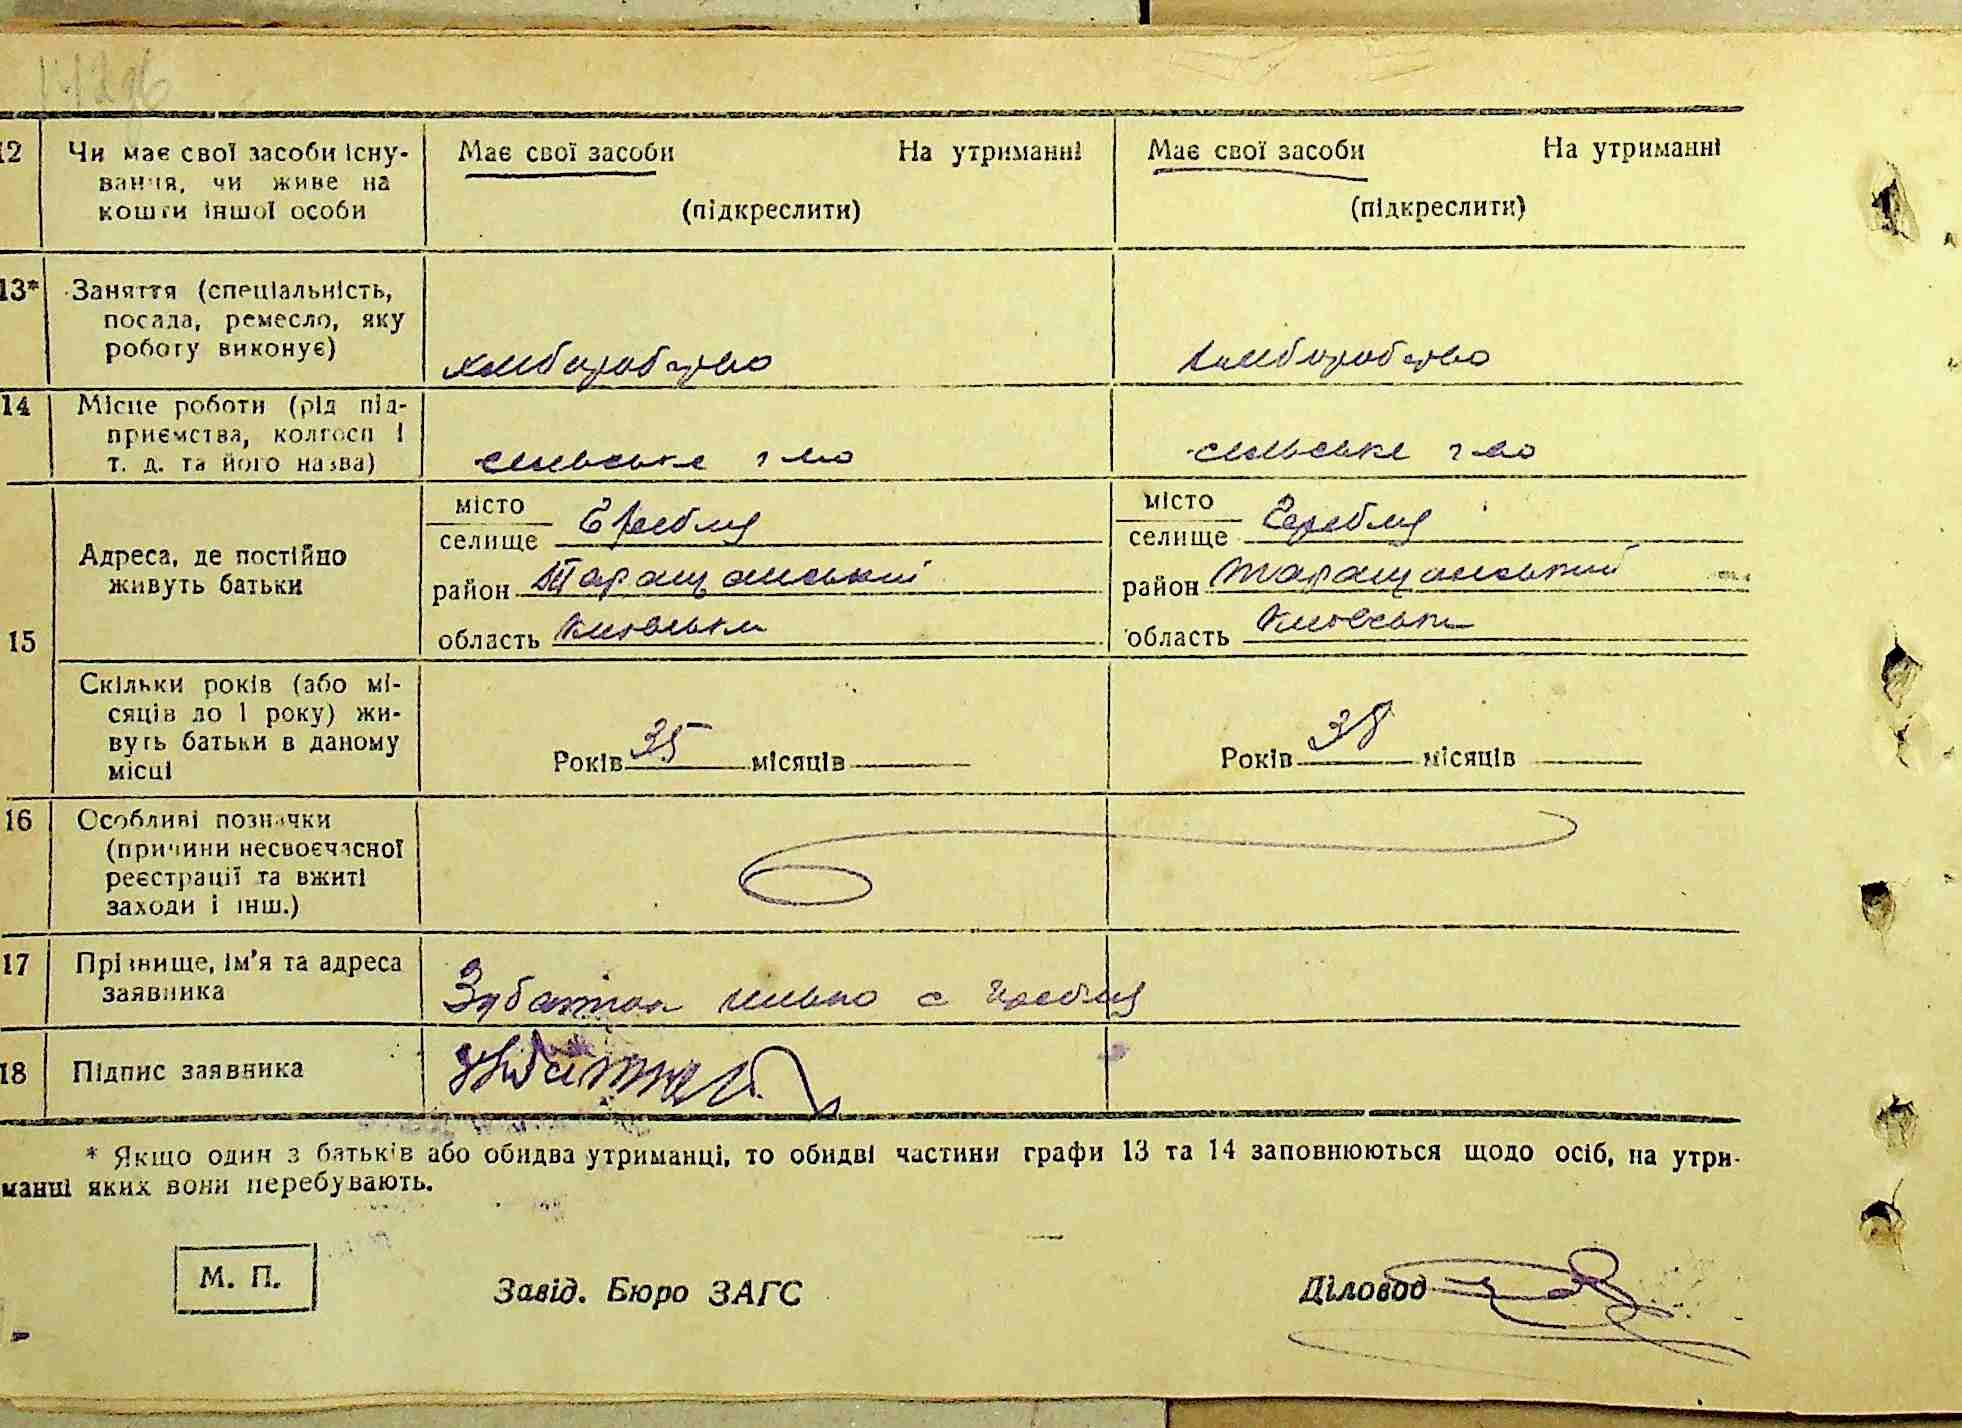 12 Чи має свої засоби існу- Має свої засоби На утриманні Має свої засоби На утриманні
вання, чи живе на
кошти іншої особи (підкреслити) (підкреслити)
13* Заняття (спеціальність,
посада, ремесло, яку
роботу виконує) хліборобство хліборобство
14 Місце роботи (рід під-
приємства, колгосп і
т. д. та його назва) сільське г-во сільське г-во
місто місто
Адреса, де постійно селище Гребля селище Гребля
живуть батьки район Таращанський район Таращанський
15 область Київська область Київська
Скільки років (або мі-
сяців до 1 року) жи-
вуть батьки в даному Років 35 місяців Років 38 місяців
місці
16 Особливі позначки
(причини несвоєчасної
реєстрації та вжиті
заходи і інш.)
17 Прізвище, ім'я та адреса
заявника с Гребля
18 Підпис заявника
* Якщо один з батьків або обидва утриманці, то обидві частини графи 13 та 14 заповнюються щодо осіб, на утри-
манні яких вони перебувають.
М. П. Завід. Бюро ЗАГС Діловод